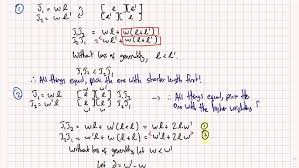 ① J₁ = wl } [l] [l']
J₂ = wl' [w] [w]
J₁J₂ = wl + w(l+l')
J₂J₁ = wl' + w(l+l')
Without loss of generality, l < l'.
J₁J₂ < J₂J₁
∴ All things equal, pick the one with shorter length first!
② J₁ = w'l
J₂ = wl
∴ All things equal, pick the one with the higher weighting
J₁J₂ = w'l + w(l+l) = w'l + 2lw ①
J₂J₁ = wl + w'(l+l) = wl + 2lw' ②
Without loss of generality let w < w'
let = w' - w